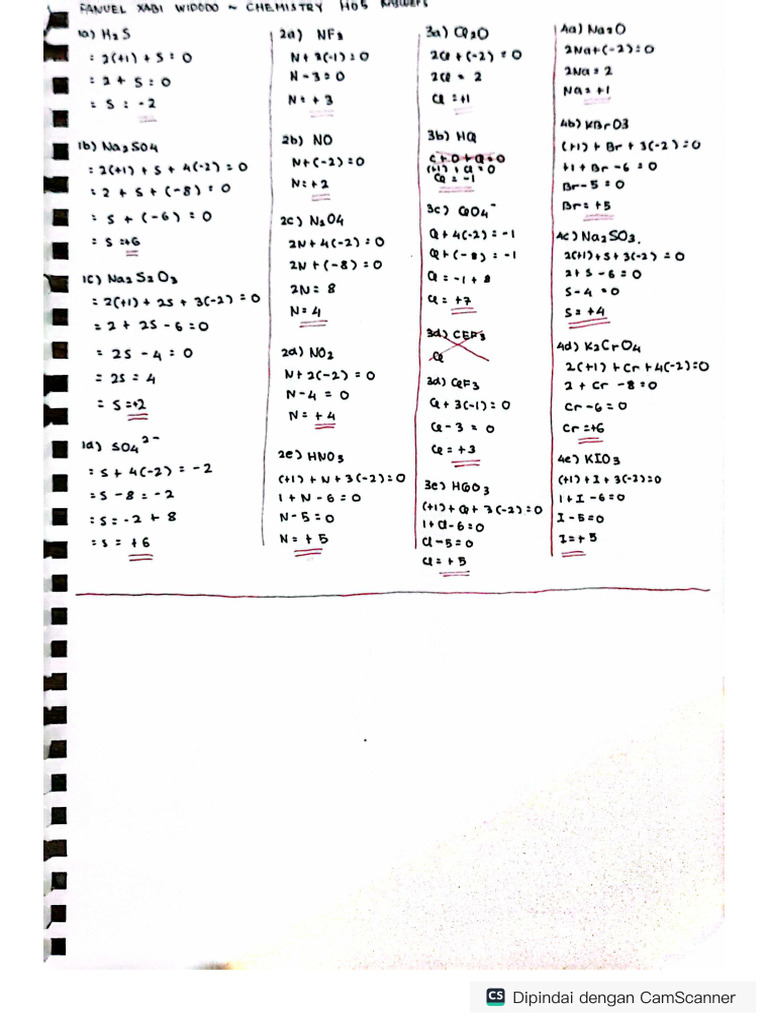 FANUEL XABI WIDODO ~ CHEMISTRY H05
1a) H₂S
: 2(+1) + S : 0
: 2 + S : 0
: S : -2
1b) Na₂SO4
: 2(+1) + S + 4(-2) = 0
: 2 + S + (-8) : 0
: S + (-6) : 0
: S =+6
1c) Na₂S₂O₃
= 2(+1) + 2S + 3(-2) = 0
= 2 + 2S - 6 = 0
= 2S - 4 = 0
= 2S = 4
= S =+2
1d) SO4²⁻
: S + 4(-2) = -2
= S - 8 = -2
: S = -2 + 8
: S = +6
2a) NF₃
N + 3(-1) = 0
N - 3 = 0
N = +3
2b) NO
N + (-2) = 0
N = +2
2c) N₂O4
2N + 4(-2) = 0
2N + (-8) = 0
2N = 8
N = 4
2d) NO₂
N + 2(-2) = 0
N - 4 = 0
N = +4
2e) HNO₃
(+1) + N + 3(-2) = 0
1 + N - 6 = 0
N - 5 = 0
N = +5
3a) Cl₂O
2Cl + (-2) = 0
2Cl = 2
Cl = +1
3b) HCl
(+1) + Cl = 0
Cl = -1
3c) ClO4⁻
Cl + 4(-2) = -1
Cl + (-8) = -1
Cl = -1 + 8
Cl = +7
3d)
Cl
3d) ClF₃
Cl + 3(-1) = 0
Cl - 3 = 0
Cl = +3
3e) HClO₃
(+1) + Cl + 3(-2) = 0
1 + Cl - 6 = 0
Cl - 5 = 0
Cl = +5
4a) Na₂O
2Na + (-2) = 0
2Na = 2
Na = +1
4b) KBrO3
(+1) + Br + 3(-2) = 0
+1 + Br - 6 = 0
Br - 5 = 0
Br = +5
4c) Na₂SO₃.
2(+1) + S + 3(-2) = 0
2 + S - 6 = 0
S - 4 = 0
S = +4
4d) K₂CrO4
2(+1) + Cr + 4(-2) = 0
2 + Cr - 8 = 0
Cr - 6 = 0
Cr =+6
4e) KIO₃
(+1) + I + 3(-2) = 0
1 + I - 6 = 0
I - 5 = 0
I = +5
CS Dipindai dengan CamScanner